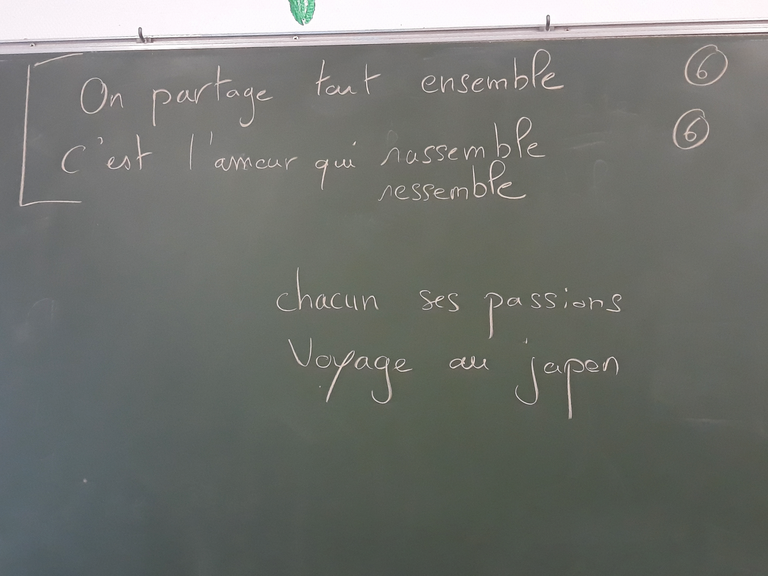 On partage tout ensemble 6
C'est l'amour qui rassemble 6
ressemble
chacun ses passions
Voyage au japon